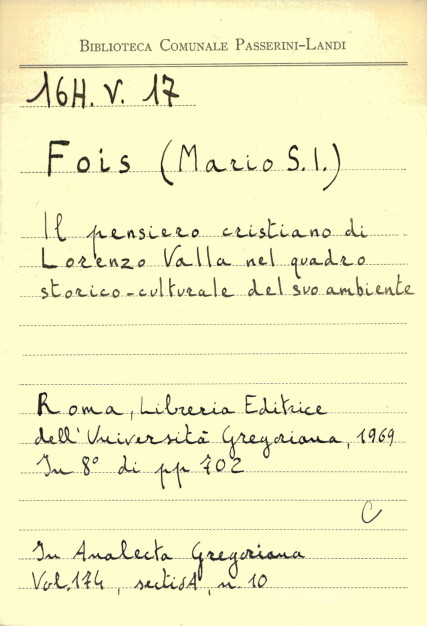 BIBLIOTECA COMUNALE PASSERINI-LANDI
16H. V. 17
Fois (Mario S.I.)
Il pensiero cristiano di
Lorenzo Valla nel quadro
storico-culturale del suo ambiente
Roma, Libreria Editrice
dell'Università Gregoriana, 1969
In 8° di pp 702
C
In Analecta Gregoriana
Vol. 174, n. 10